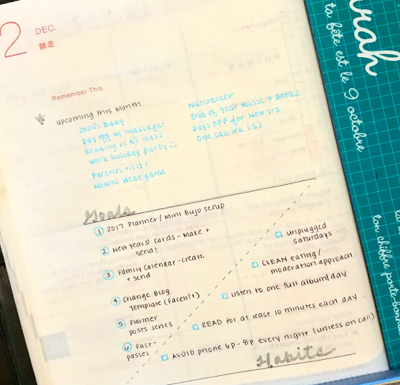 2
DEC.
師走
Remember This
upcoming this month
John's Bday
Day
massage!
Reading in K's class
Work Holiday party
Parents visit!
Miami Heat game
Nutcracker
End of Year Music + Books
Days OFF for New Yrs
One call wk
Goals
1 2017 Planner / Mini Bujo setup
2 New Years Cards - Make + send!
3 Family Calendar - create + send
4 Change Blog Template (facelift)
5 Planner posts series
6 Fast-passes
unplugged Saturdays
CLEAN eating / moderation approach
Listen to one full album/day
READ for at least 10 minutes each day
AVOID phone 6P-8P every night (unless on call)
Habits
rah
ta fête est le 9 octobre
ton chiffre porte-bonh